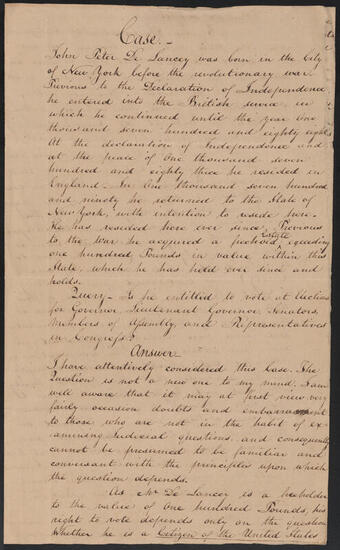 Case.—
John Peter De Lancey was born in the City
of New York before the revolutionary war.
Previous to the Declaration of Independence
he entered into the British service in
which he continued until the year One
thousand seven hundred and eighty eight
At the declaration of Independence and
at the peace of One thousand seven
hundred and eighty three he resided in
England— In One thousand seven hundred
and ninety he returned to the State of
New York, with intention to reside here—
He has resided here ever since. Previous
to the war he acquired a freehold Estate exceeding
one hundred Pounds in value within this
State, which he has held ever since and
holds.
Query— Is he entitled to vote at Elections
for Governor, Lieutenant Governor, Senators,
Members of Assembly, and Representatives
in Congress?
Answer—
I have attentively considered this Case. The
Question is not a new one to my mind. I am
well aware that it may at first view, very
fairly occasion doubts and embarrassment
to those who are not in the habit of ex-
amining Judicial questions, and consequently
cannot be presumed to be familiar and
conversant with the principles upon which
the question depends.
As Mr De Lancey is a freeholder
to the value of One hundred Pounds, his
right to vote depends only on the question
Whether he is a Citizen of the United States